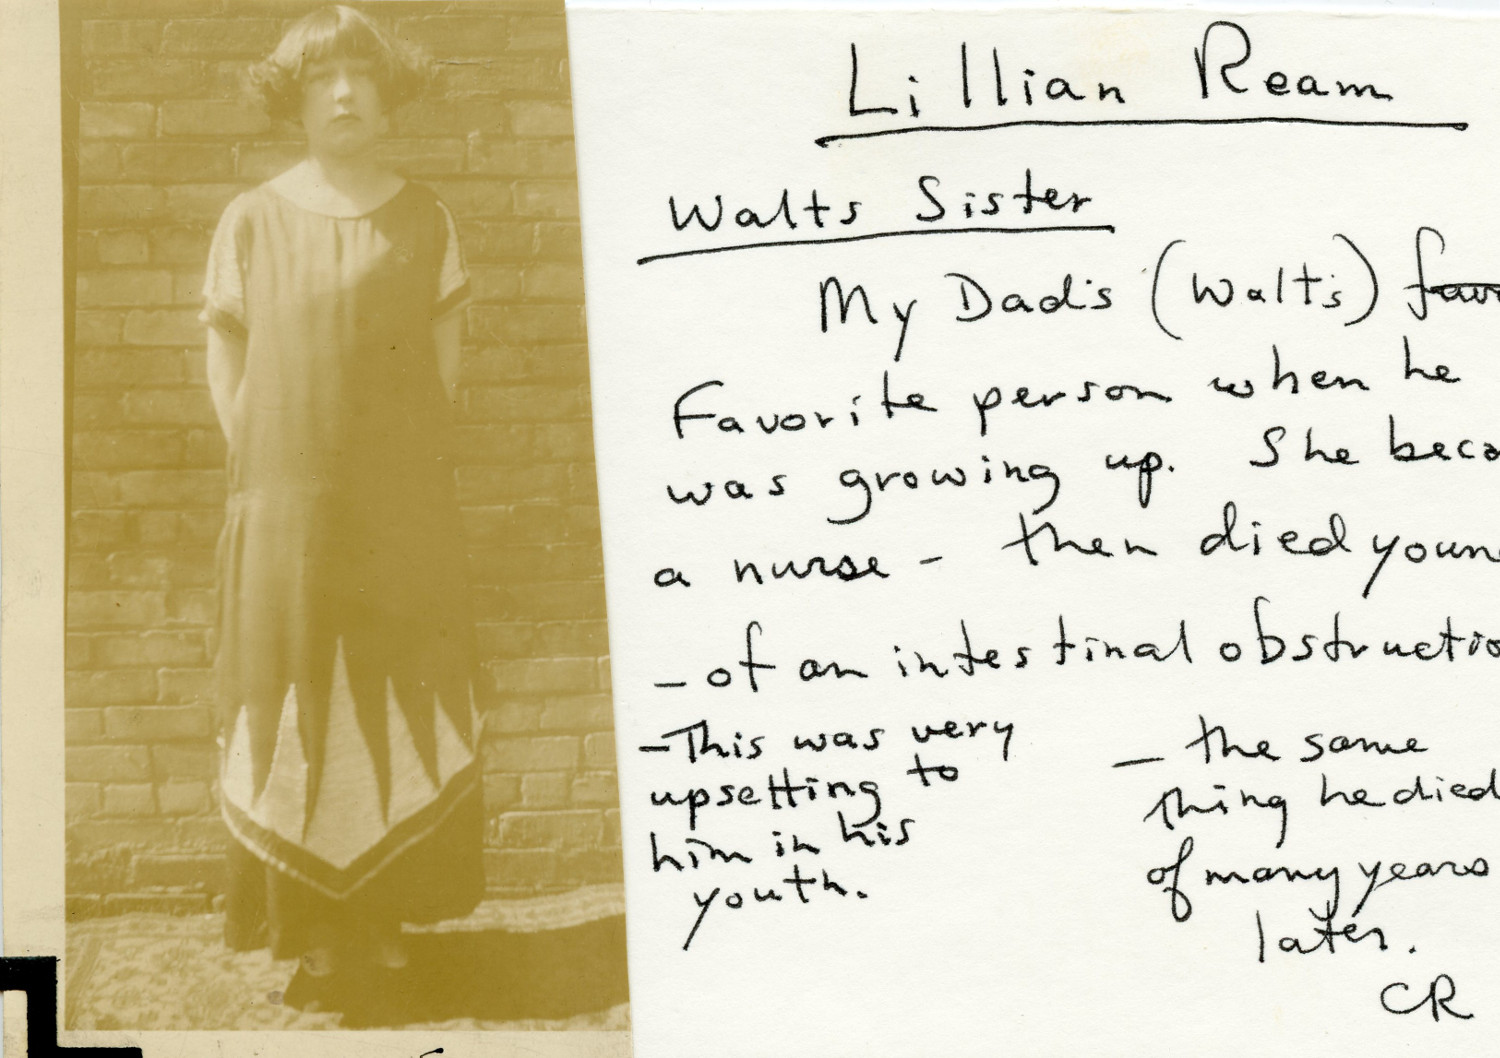 Lillian Ream
Walts Sister
My Dad's (Walt's) favo
Favorite person when he
was growing up. She beca
a nurse - then died youn
- of an intestinal obstructio
- This was very
upsetting to
him in his
youth.
- the same
thing he died
of many years
later.
CR